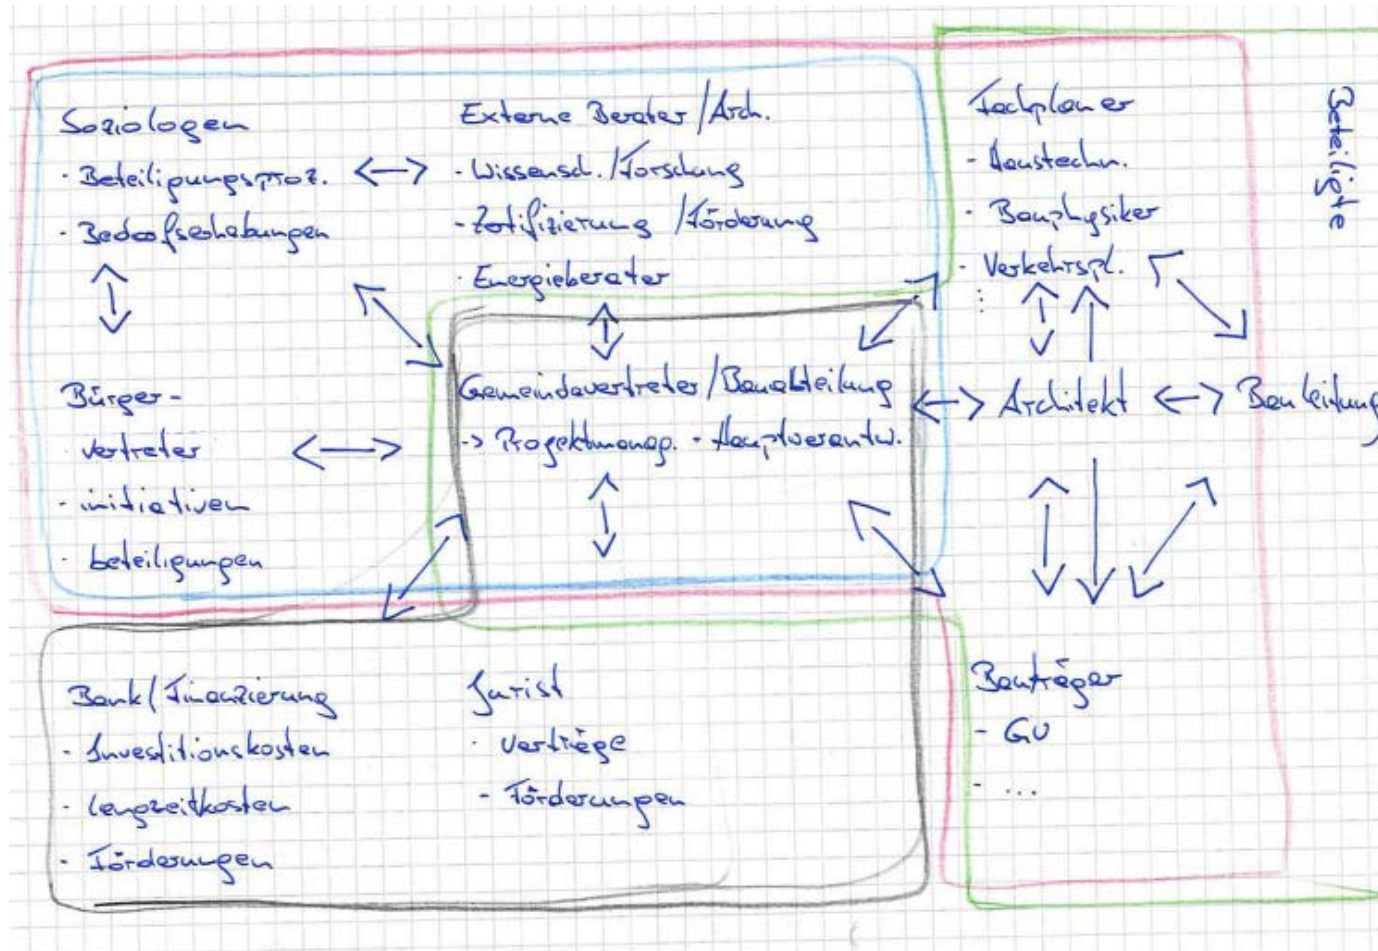 Beteiligte
Soziologen
· Beteiligungsproz.
· Bedarfserhebungen
Externe Berater/Arch.
· Wissensch./Forschung
- Zertifizierung/Förderung
· Energieberater
Fachplaner
- Haustechn.
- Bauphysiker
- Verkehrspl.
Bürger-
· vertreter
- initiativen
· beteiligungen
Gemeindevertreter/Bauabteilung
-> Projektmanag. - Hauptverantw.
Architekt
Bauleitung
Bank/Finanzierung
- Investitionskosten
- Langzeitkosten
- Förderungen
Jurist
· Verträge
- Förderungen
Bauträger
- GU
- ...